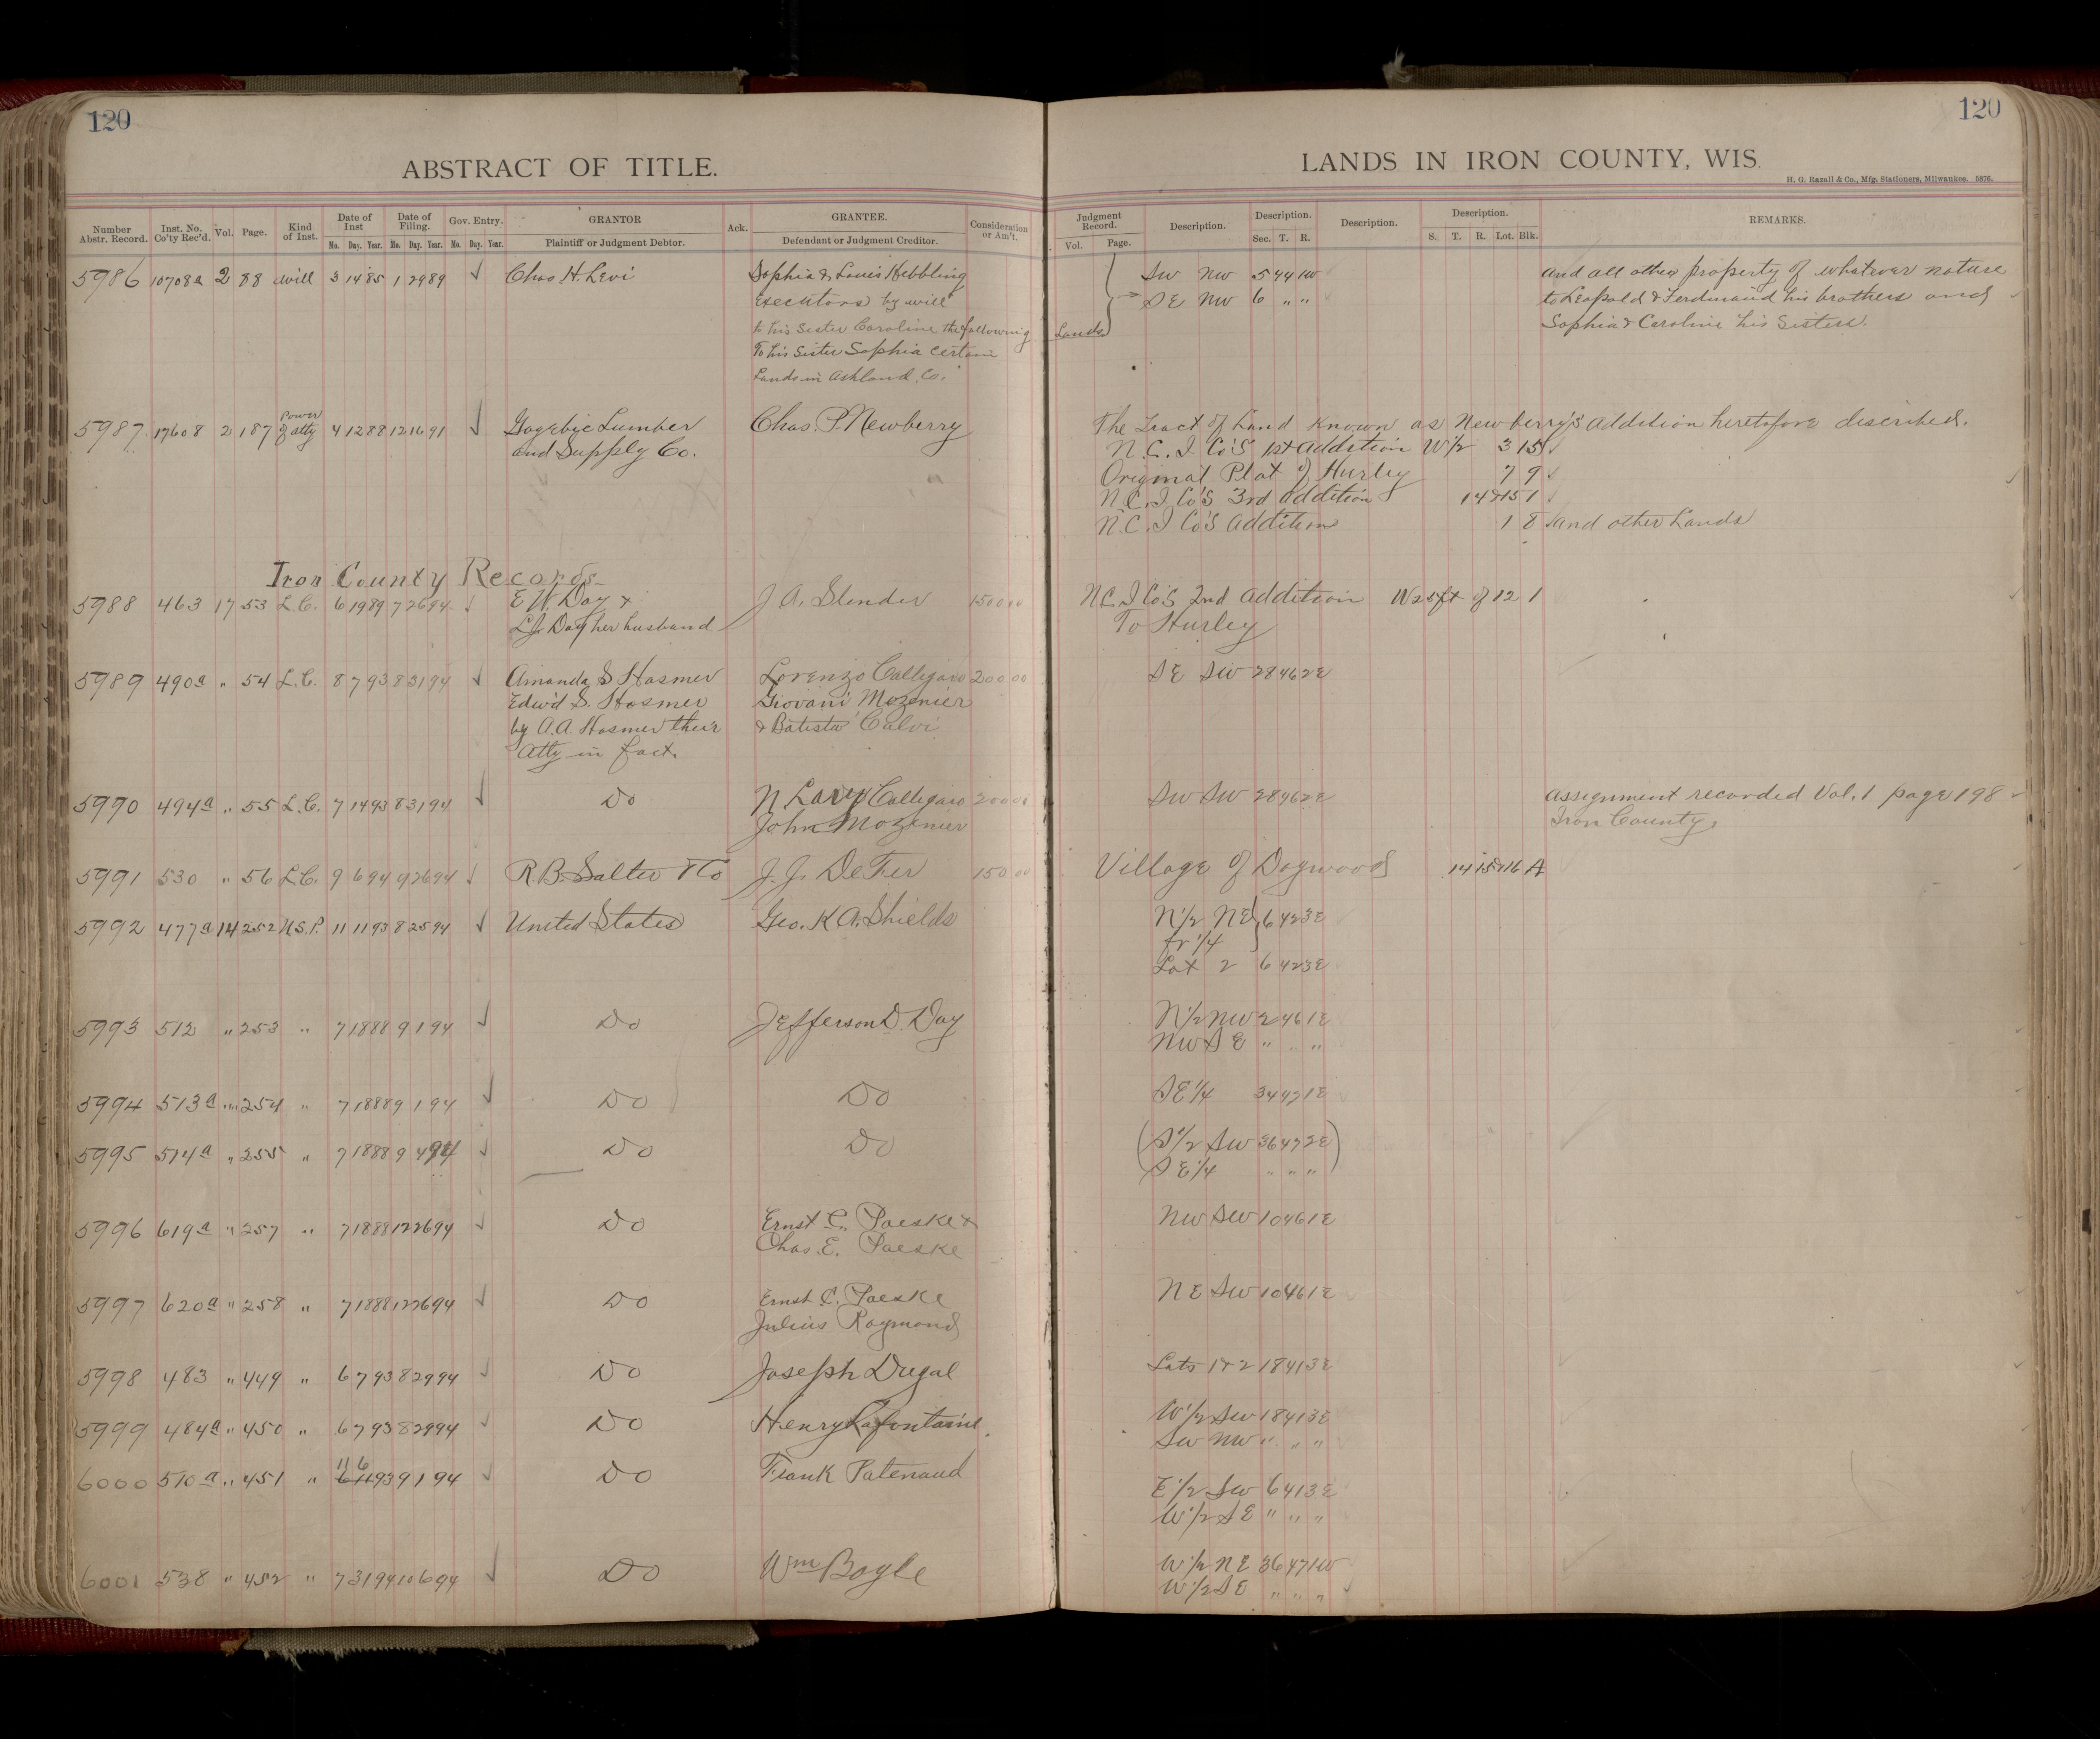 120
120
ABSTRACT OF TITLE.
LANDS IN IRON COUNTY, WIS.
H. G. Razall & Co., Mfg. Stationers, Milwaukee. 5876.
Number Abstr. Record. Inst. No. Co'ty Rec'd. Vol. Page. Kind of Inst. Date of Inst Mo. Day. Year. Date of Filing. Mo. Day. Year. Gov. Entry. Mo. Day. Year. GRANTOR Plaintiff or Judgment Debtor. Ack. GRANTEE. Defendant or Judgment Creditor. Consideration or Am't. Judgment Record. Vol. Page. Description. Description. Sec. T. R. Description. Description. S. T. R. Lot. Blk. REMARKS.
5986 10708a 2 88 will 3 14 85 1 29 89 ✓ Chas H. Levi Sophia & Louis Hebbling SW NW 5 44 1W and all other property of whatever nature
Executors by will SE NW 6 " " to Leopold & Ferdinand his brothers and
to his Sister Caroline the following Lands Sophia & Caroline his Sisters.
To his Sister Sophia certain
Lands in Ashland Co.
5987 17608 2 187 Power of atty 4 12 88 12 16 91 ✓ Gogebic Lumber Chas. P. Newberry The Tract of Land Known as Newberry's addition heretofore described.
and Supply Co. N.C.I Co's 1st addition W 1/2 3 15
Original Plat of Hurley 7 9
N.C.I Co's 3rd addition 14&15 1
N.C.I Co's addition 1 8 and other Lands
Iron County Records
5988 463 17 53 L.C. 6 19 89 7 26 94 ✓ E W. Day & J A. Slender 1500 00 N.C.I Co's 2nd addition W 25 ft of 12 1
L.J. Day her husband To Hurley
5989 490a " 54 L.C. 8 7 93 8 31 94 ✓ Amanda S Hosmer Lorenzo Calligaro 200 00 SE SW 28 46 2E
Edw'd S. Hosmer Giovani Mozenier
by A.A. Hosmer their & Batista Calvi
Atty in fact.
5990 494a " 55 L.C. 7 14 93 8 31 94 ✓ Do Calligaro 200 00 SW SW 28 46 2E assignment recorded Vol. 1 page 198
John Mozenier Iron County.
5991 530 " 56 L.C. 9 6 94 9 26 94 ✓ R.B. Salter & Co J.J. DeFer 150 00 Village of Dogwood 14 15&16 A
5992 477a 14 252 U.S.P. 11 11 93 8 25 94 ✓ United States Geo. K A. Shields N 1/2 NE 6 42 3E
fr 1/4
Lot 2 6 42 3E
5993 512 " 253 " 7 18 88 9 1 94 ✓ Do Jefferson D. Day N 1/2 NW 2 46 1E
NW SE " " "
5994 513a " 254 " 7 18 88 9 1 94 ✓ Do Do SE 1/4 34 47 1E
5995 514a " 255 " 7 18 88 9 4 94 ✓ Do Do (S 1/2 SW 36 47 2E)
SE 1/4 " " "
5996 619a " 257 " 7 18 88 12 26 94 ✓ Do Ernst C. Paeske & NW SW 10 46 1E
Chas. E. Paeske
5997 620a " 258 " 7 18 88 12 26 94 ✓ Do Ernst C. Paeske NE SW 10 46 1E
Julius Raymond
5998 483 " 449 " 6 7 93 8 29 94 ✓ Do Joseph Dugal Lots 1 & 2 18 41 3E
5999 484a " 450 " 6 7 93 8 29 94 ✓ Do Henry Lafontaine W 1/2 SW 18 41 3E
SW NW " " "
11 6
6000 510a " 451 " 6 11 93 9 1 94 ✓ Do Frank Patenaud E 1/2 SW 6 41 3E
W 1/2 SE " " "
6001 538 " 452 " 7 31 94 10 6 94 ✓ Do Wm Bogle W 1/2 NE 36 47 1W
W 1/2 SE " " "